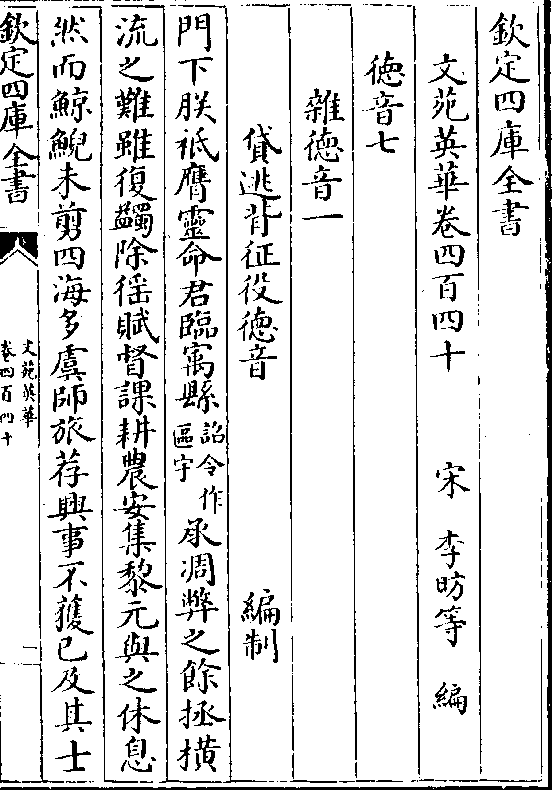 欽定四庫全書
文苑英華卷四百四十
宋 李昉等 編
德音七
雜德音一
貸逃背征役德音 編制
門下朕祗膺靈命君臨㝢縣詔令作區宇承凋弊之餘拯横
流之難雖復蠲除徭賦督課耕農安集黎元與之休息
然而鯨鯢未剪四海多虞師旅荐興事不獲已及其士
欽定四庫全書
文苑英華
卷四百四十
一